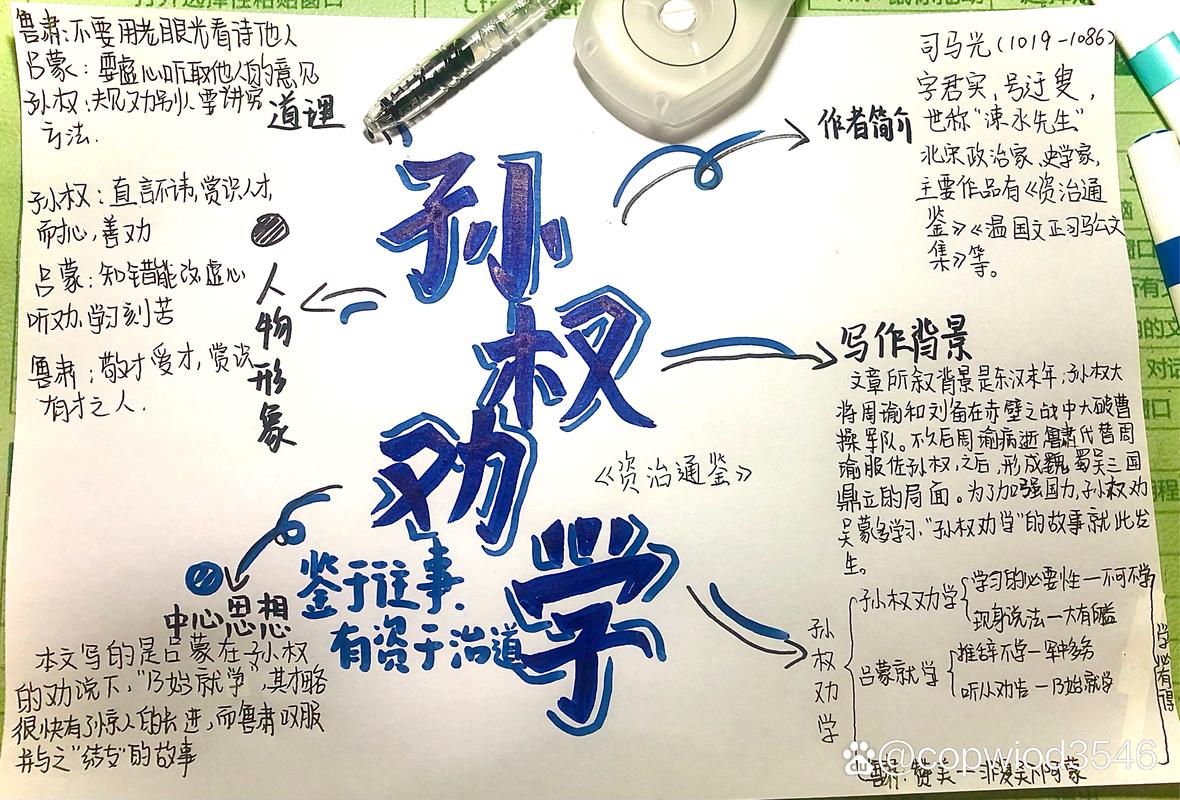 鲁肃:不要用老眼光看待他人
吕蒙:要虚心听取他人的意见
孙权:规劝别人要讲究
方法.
道理
孙权:直言不讳,赏识人才,
而耐心,善劝
吕蒙:知错能改虚心
听劝,学习刻苦
鲁肃:敬才爱才,赏识
有才之人.
人物形象
孙权劝学
《资治通鉴》
鉴于往事.
有资于治道
中心思想
本文写的是吕蒙在孙权
的劝说下,"乃始就学",其才略
很快有了惊人的长进,而鲁肃叹服
并与之"结友"的故事
作者简介
司马光(1019-1086)
字君实,号迂叟,
世称"涑水先生"
北宋政治家,史学家,
主要作品有《资治通
鉴》《温国文正司马公文
集》等。
写作背景
文章所叙背景是东汉末年,孙权大
将周瑜和刘备在赤壁之战中大破曹
操军队。不久后周瑜病逝,鲁肃代替周
瑜服佐孙权,之后,形成魏蜀吴三国
鼎立的局面。为了加强国力,孙权劝
吕蒙多学习."孙权劝学"的故事就此发
生。
孙权劝学
孙权劝学
学习的必要性一不可不学
现身说法一大有所益
吕蒙就学
推辞不学一军中多务
听从劝告一乃始就学
鲁肃:赞美一非复吴下阿蒙
学必有得
du @copwiod3546